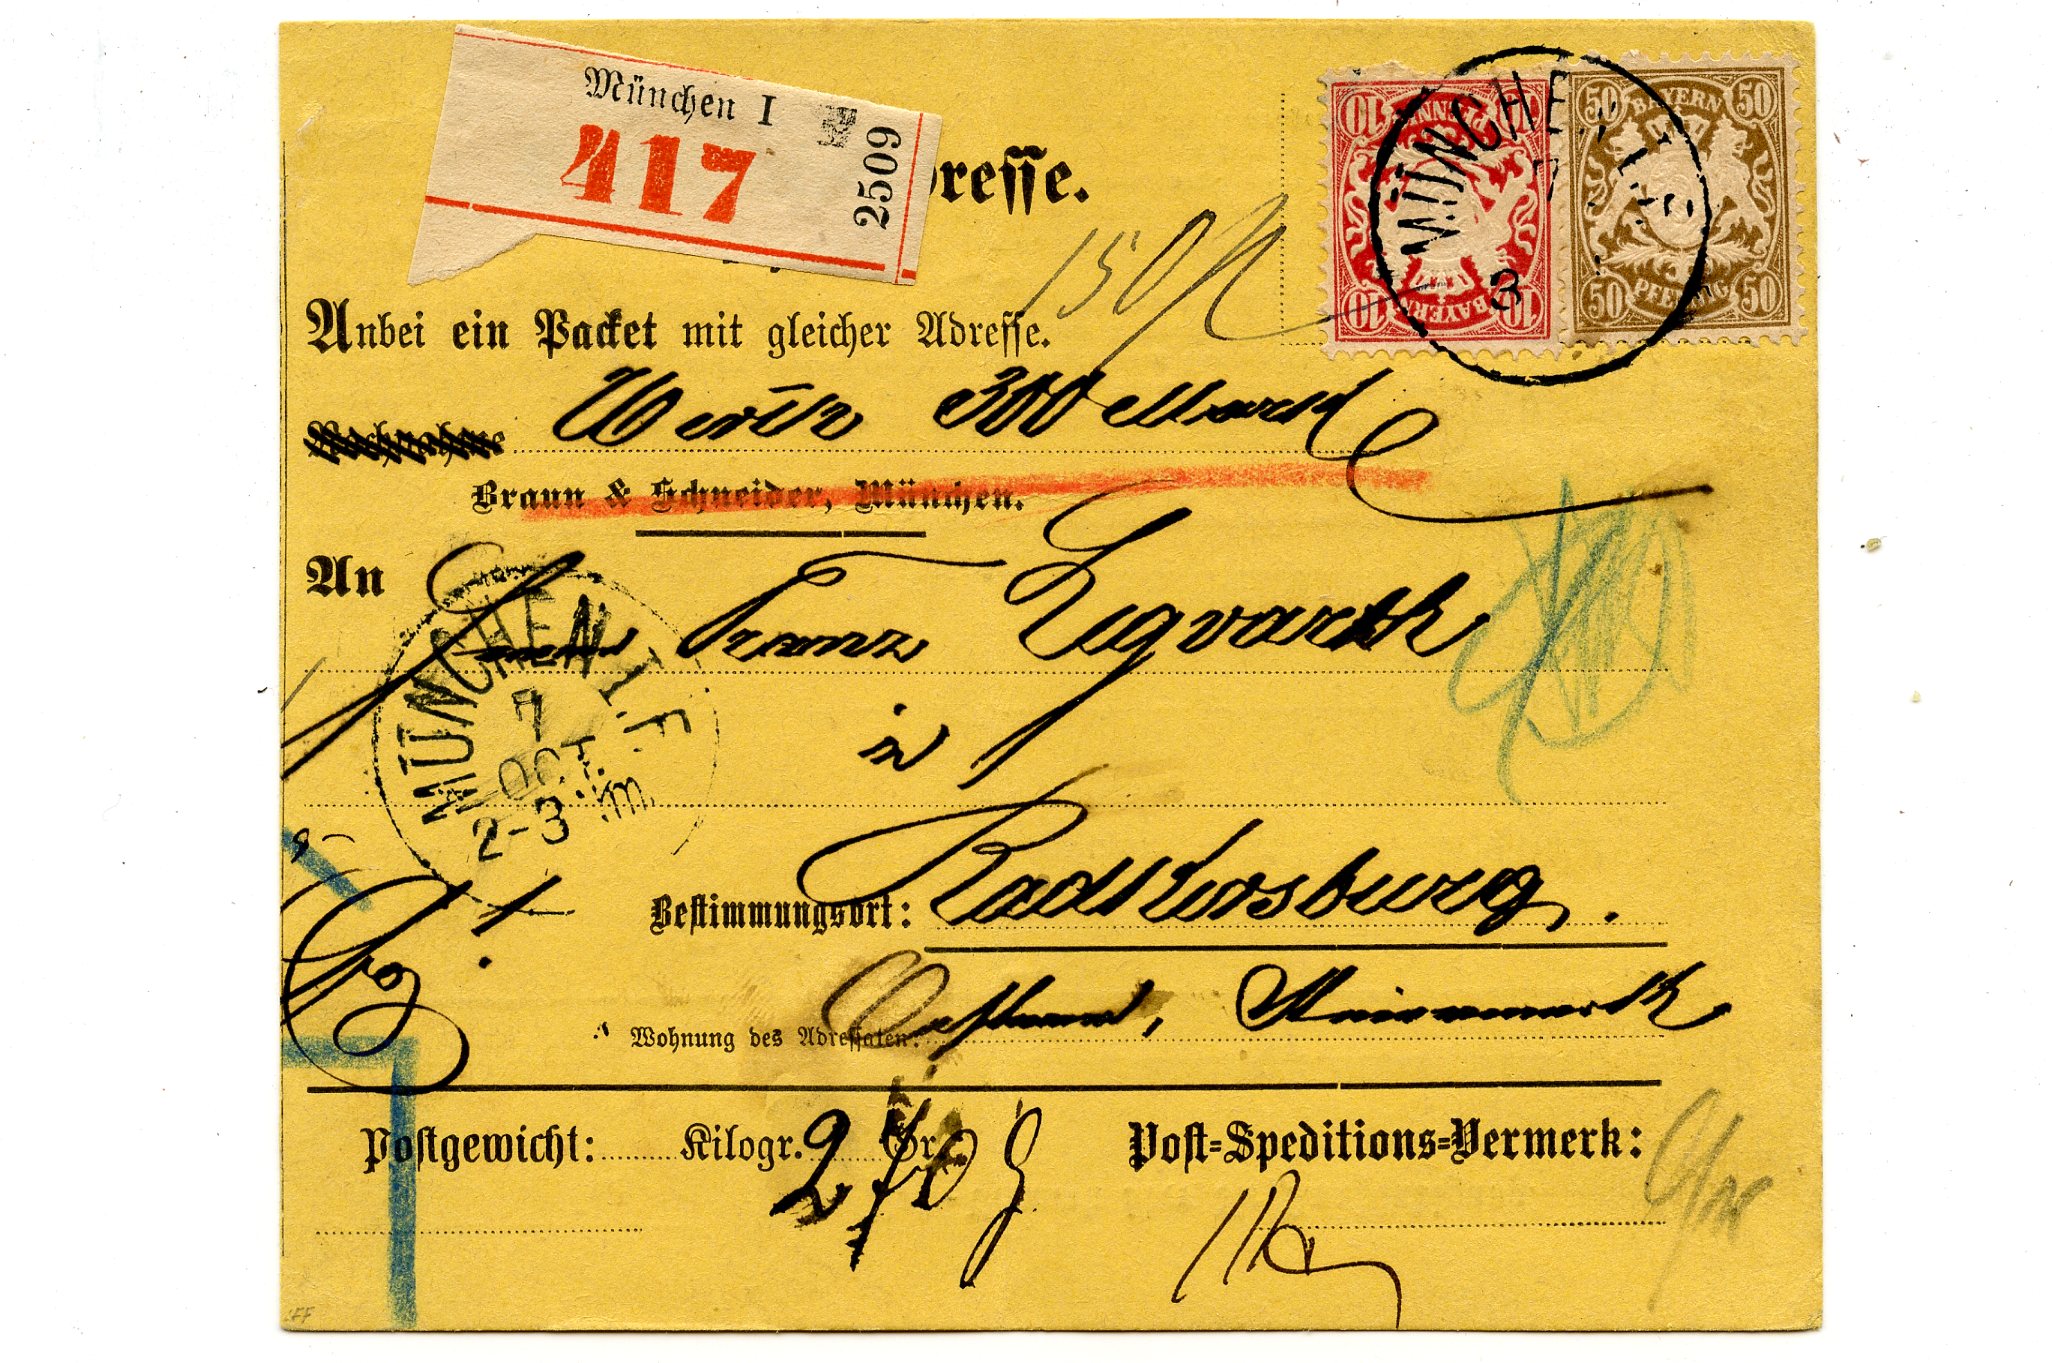 München I
417
2509
resse.
Anbei ein Packet mit gleicher Adresse.
150
Werth 300 Mark
Nachnahme
Braun & Schneider, München.
An Herrn Franz Legvarth
in
Bestimmungsort: Radkersburg.
Wohnung des Adressaten: Oestrreich, Steiermark
Postgewicht: Kilogr. Gr.
270 g
Post-Speditions-Vermerk:
MÜNCHEN I.F.
7
OCT.
2-3
MÜNCHEN
7
3
10 10
PFENNIG
BAYERN
10 10
50 50
BAYERN
PFENNIG
50 50